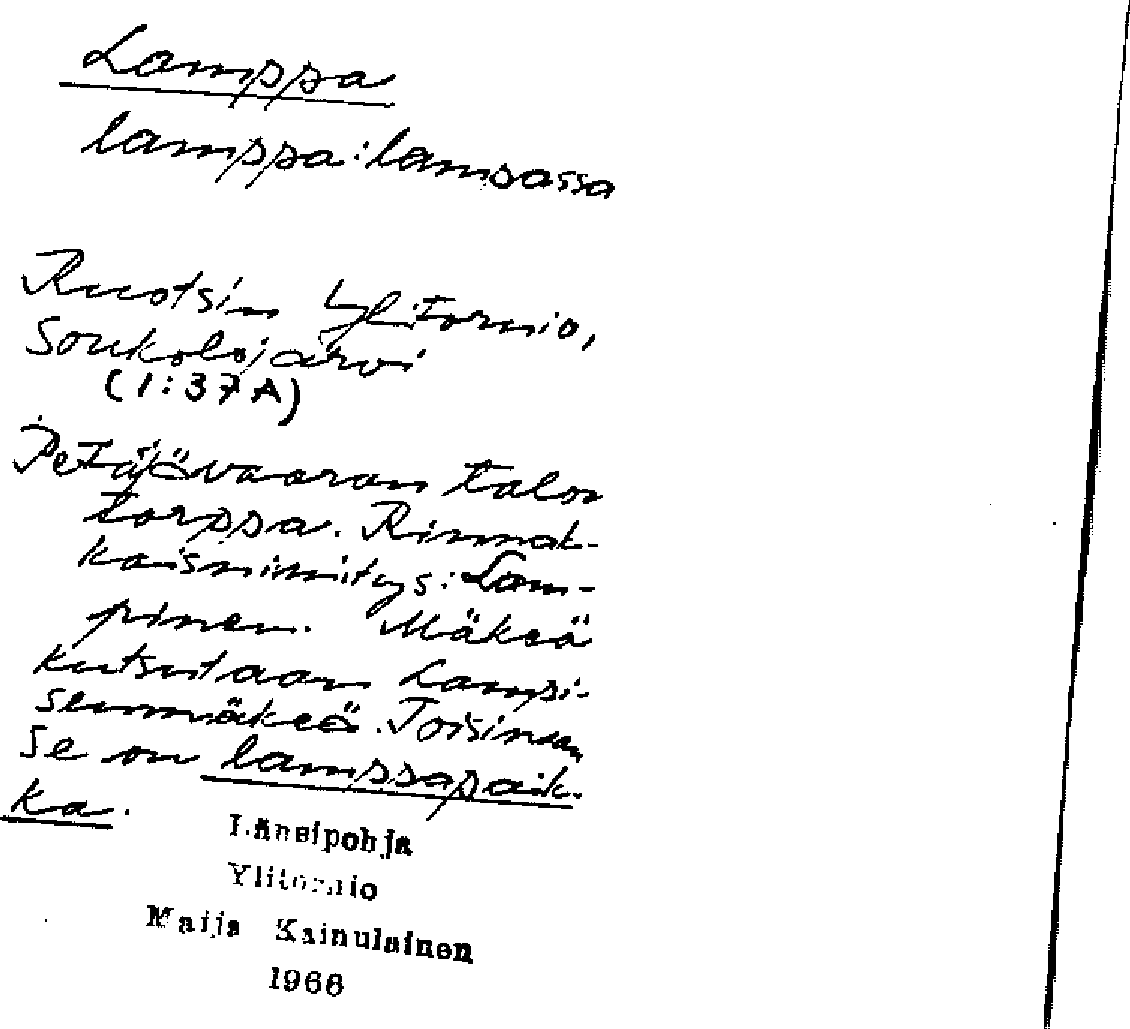 Lamppa
lamppa: lampassa
Ruotsin Ylitornio,
Soukolojärvi
(1:37A)
Petäjävaaran talon
torppa. Rinnak-
kaisnimitys: Lam-
pinen. Mäkeä
kutsutaan Lampi-
senmäkeä. Toisinaan
se on lamppapaik-
ka.
Länsipohja
Ylitornio
Maija Kainulainen
1966